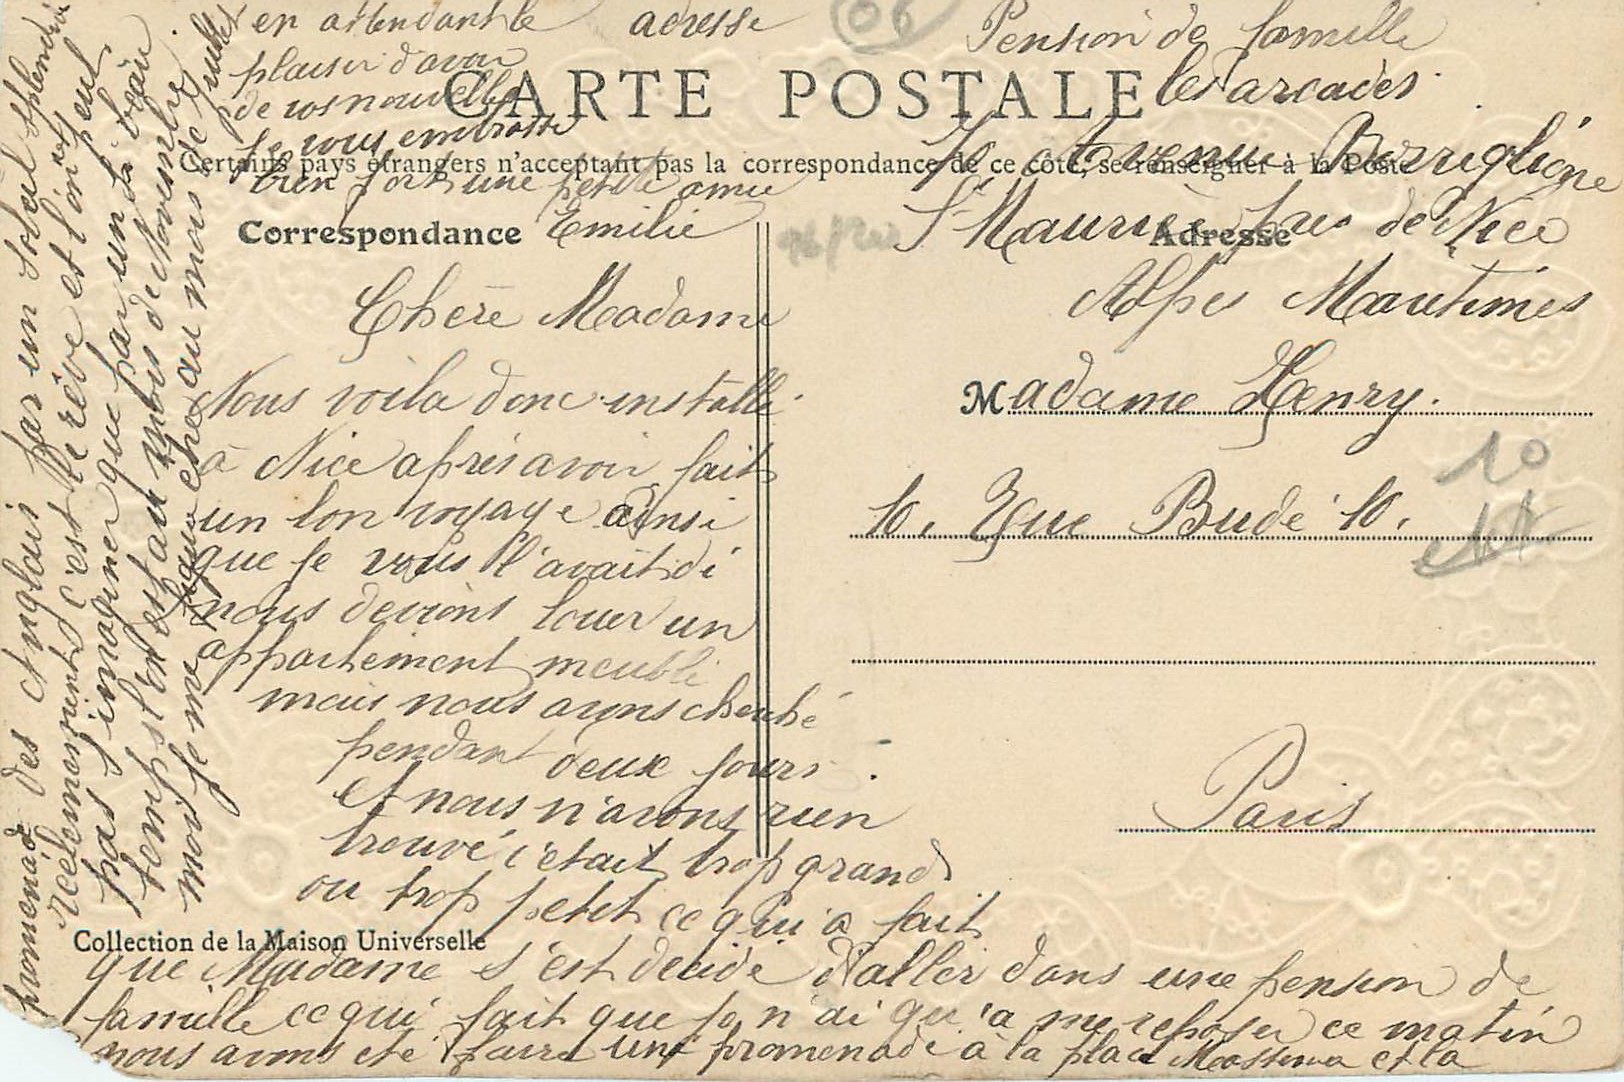 CARTE POSTALE
Certains pays étrangers n'acceptant pas la correspondance de ce côté, se renseigner à la Poste
Correspondance
Adresse
Chère Madame
Nous voila donc installé
à Nice aprés avoir fait
un bon voyage ainsi
que je vous l'avait di
nous devions louer un
appartement meublé
mais nous avons cherché
pendant deux jours.
et nous n'avons rien
trouvé c'était trop grand
ou trop petit ce qui a fait
que Madame s'est decidé d'aller dans une pension de
famille ce qui fait que je n'ai qu'a me reposer ce matin
nous avons eté faire une promenade à la place Massena et la
promenad des Anglais par un soleil splendide
Réelement c'est le rêve et l'on peut
pas s'imaginer que par un si beau
temps l'on est au mois de Novembre
moi je me figure être au mois de Juillet
en attendant le
plaisir d'avoir
de vos nouvelles
Je vous embrasse
bien fort une petite amie
Emilie
adresse
06
Pension de famille
les arcades
10 Avenue Borriglione
St Maurice près de Nice
Alpes Maritimes
Madame Henry.
10, Rue Budé 10.
Paris
10
Collection de la Maison Universelle